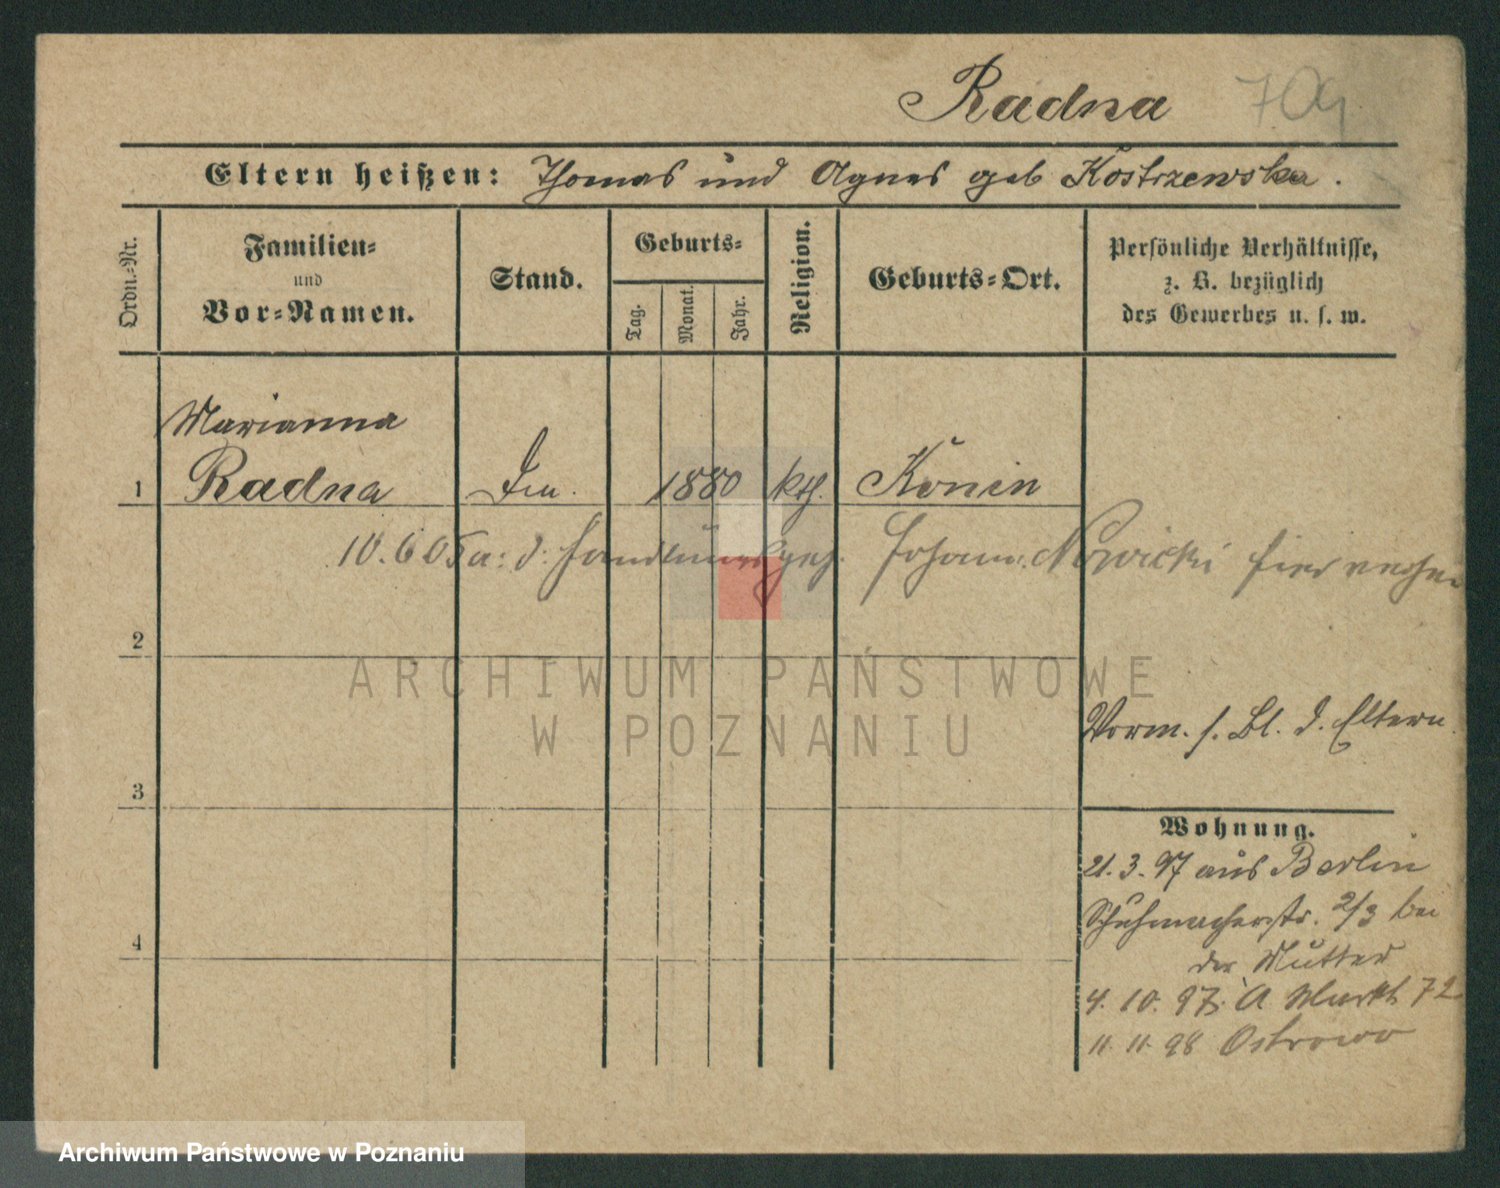 Radna 709
Eltern heißen: Thomas und Agnes geb Kostrzewska.
Ordn.-Nr.
Familien-
und
Vor-Namen.
Stand.
Geburts-
Tag.
Monat.
Jahr.
Religion.
Geburts-Ort.
Persönliche Verhältnisse,
z. B. bezüglich
des Gewerbes u. s. w.
Marianna
1 Radna 1880 kth. Konin
10.6.05 a: d. Handlungsgeh. Johann Nowicki hier
2
ARCHIWUM PAŃSTWOWE
W POZNANIU
Vorm. s. Bl. d. Eltern
3
Wohnung.
21.3.97 aus Berlin
Schuhmacherstr. 2/3 bei
der Mutter
4
4.10.97. A Markt 72
11.11.98 Ostrowo
Archiwum Państwowe w Poznaniu